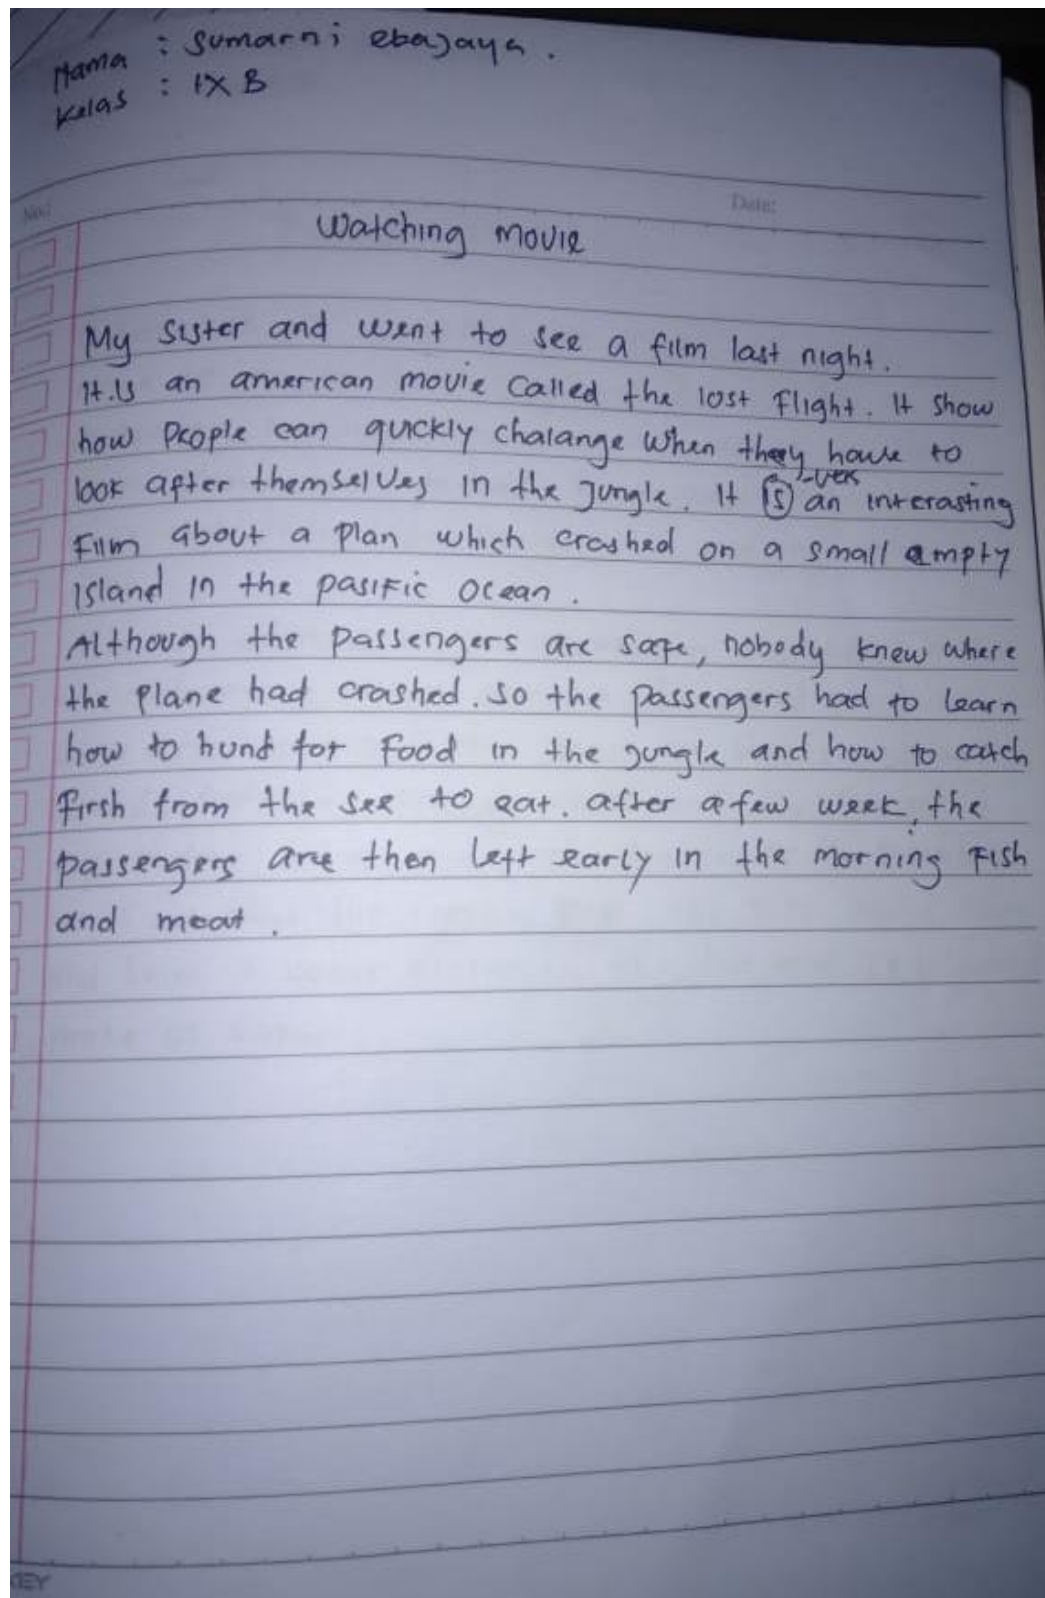 Nama : Sumarni ebajaya .
Kelas : IX B
No:
Date:
Watching Movie
My Sister and went to see a film last night.
It.is an american movie Called the lost Flight. It show
how people can quickly chalange when they have to
look after themselves in the jungle. It is an interasting
Film about a plan which crashed on a small ampty
Island in the pasific ocean .
Although the passengers are safe, nobody knew where
the plane had crashed. so the passengers had to learn
how to hund for food in the jungle and how to catch
firsh from the see to eat. after a few week, the
passengers are then left early in the morning Fish
and meat .
KEY